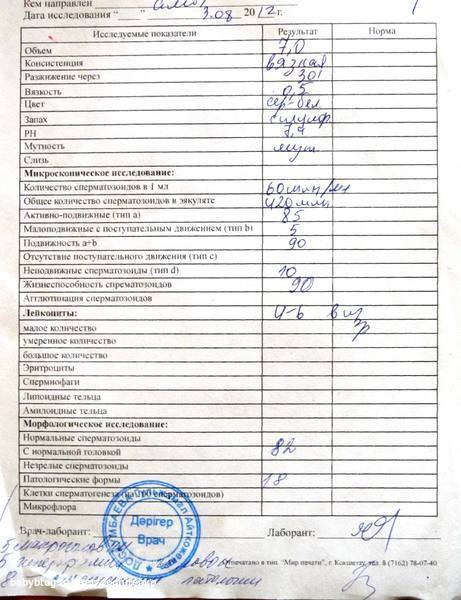 Кем направлен
Дата исследования "___" 3.08 2012 г.
Исследуемые показатели Результат Норма
Объем 7,0
Консистенция вязкая
Разжижение через 30'
Вязкость 0,5
Цвет сер-бел
Запах
РН 7,4
Мутность мут.
Слизь
Микроскопическое исследование:
Количество сперматозоидов в 1 мл 60 млн/мл
Общее количество сперматозоидов в эякуляте 420 млн
Активно-подвижные (тип а) 85
Малоподвижные с поступательным движением (тип b) 5
Подвижность а+b 90
Отсутствие поступательного движения (тип с)
Неподвижные сперматозоиды (тип d) 10
Жизнеспособность спрематозоидов 90
Агглютинация сперматозоидов
Лейкоциты: 4-6 в п/зр
малое количество
умеренное количество
большое количество
Эритроциты
Спермиофаги
Липоидные тельца
Амилоидные тельца
Морфологическое исследование:
Нормальные сперматозоиды
С нормальной головкой 82
Незрелые сперматозоиды
Патологические формы 18
Клетки сперматогенеза (на 100 сперматозоидов)
Микрофлора
Дәрігер
Врач
Врач-лаборант: Лаборант:
Отпечатано в тип. "Мир печати", г. Кокшетау, тел. 8 (7162) 78-07-40
патологии
babyblog